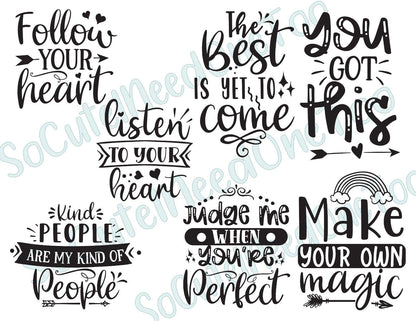 Follow
YOUR
heart
The
Best
IS YET TO
come
you
GOT
this
listen
TO YOUR
heart
Kind
PEOPLE
ARE MY KIND OF
People
Judge me
WHEN
you're
Perfect
Make
YOUR OWN
magic
SoCuteINeedOneToo